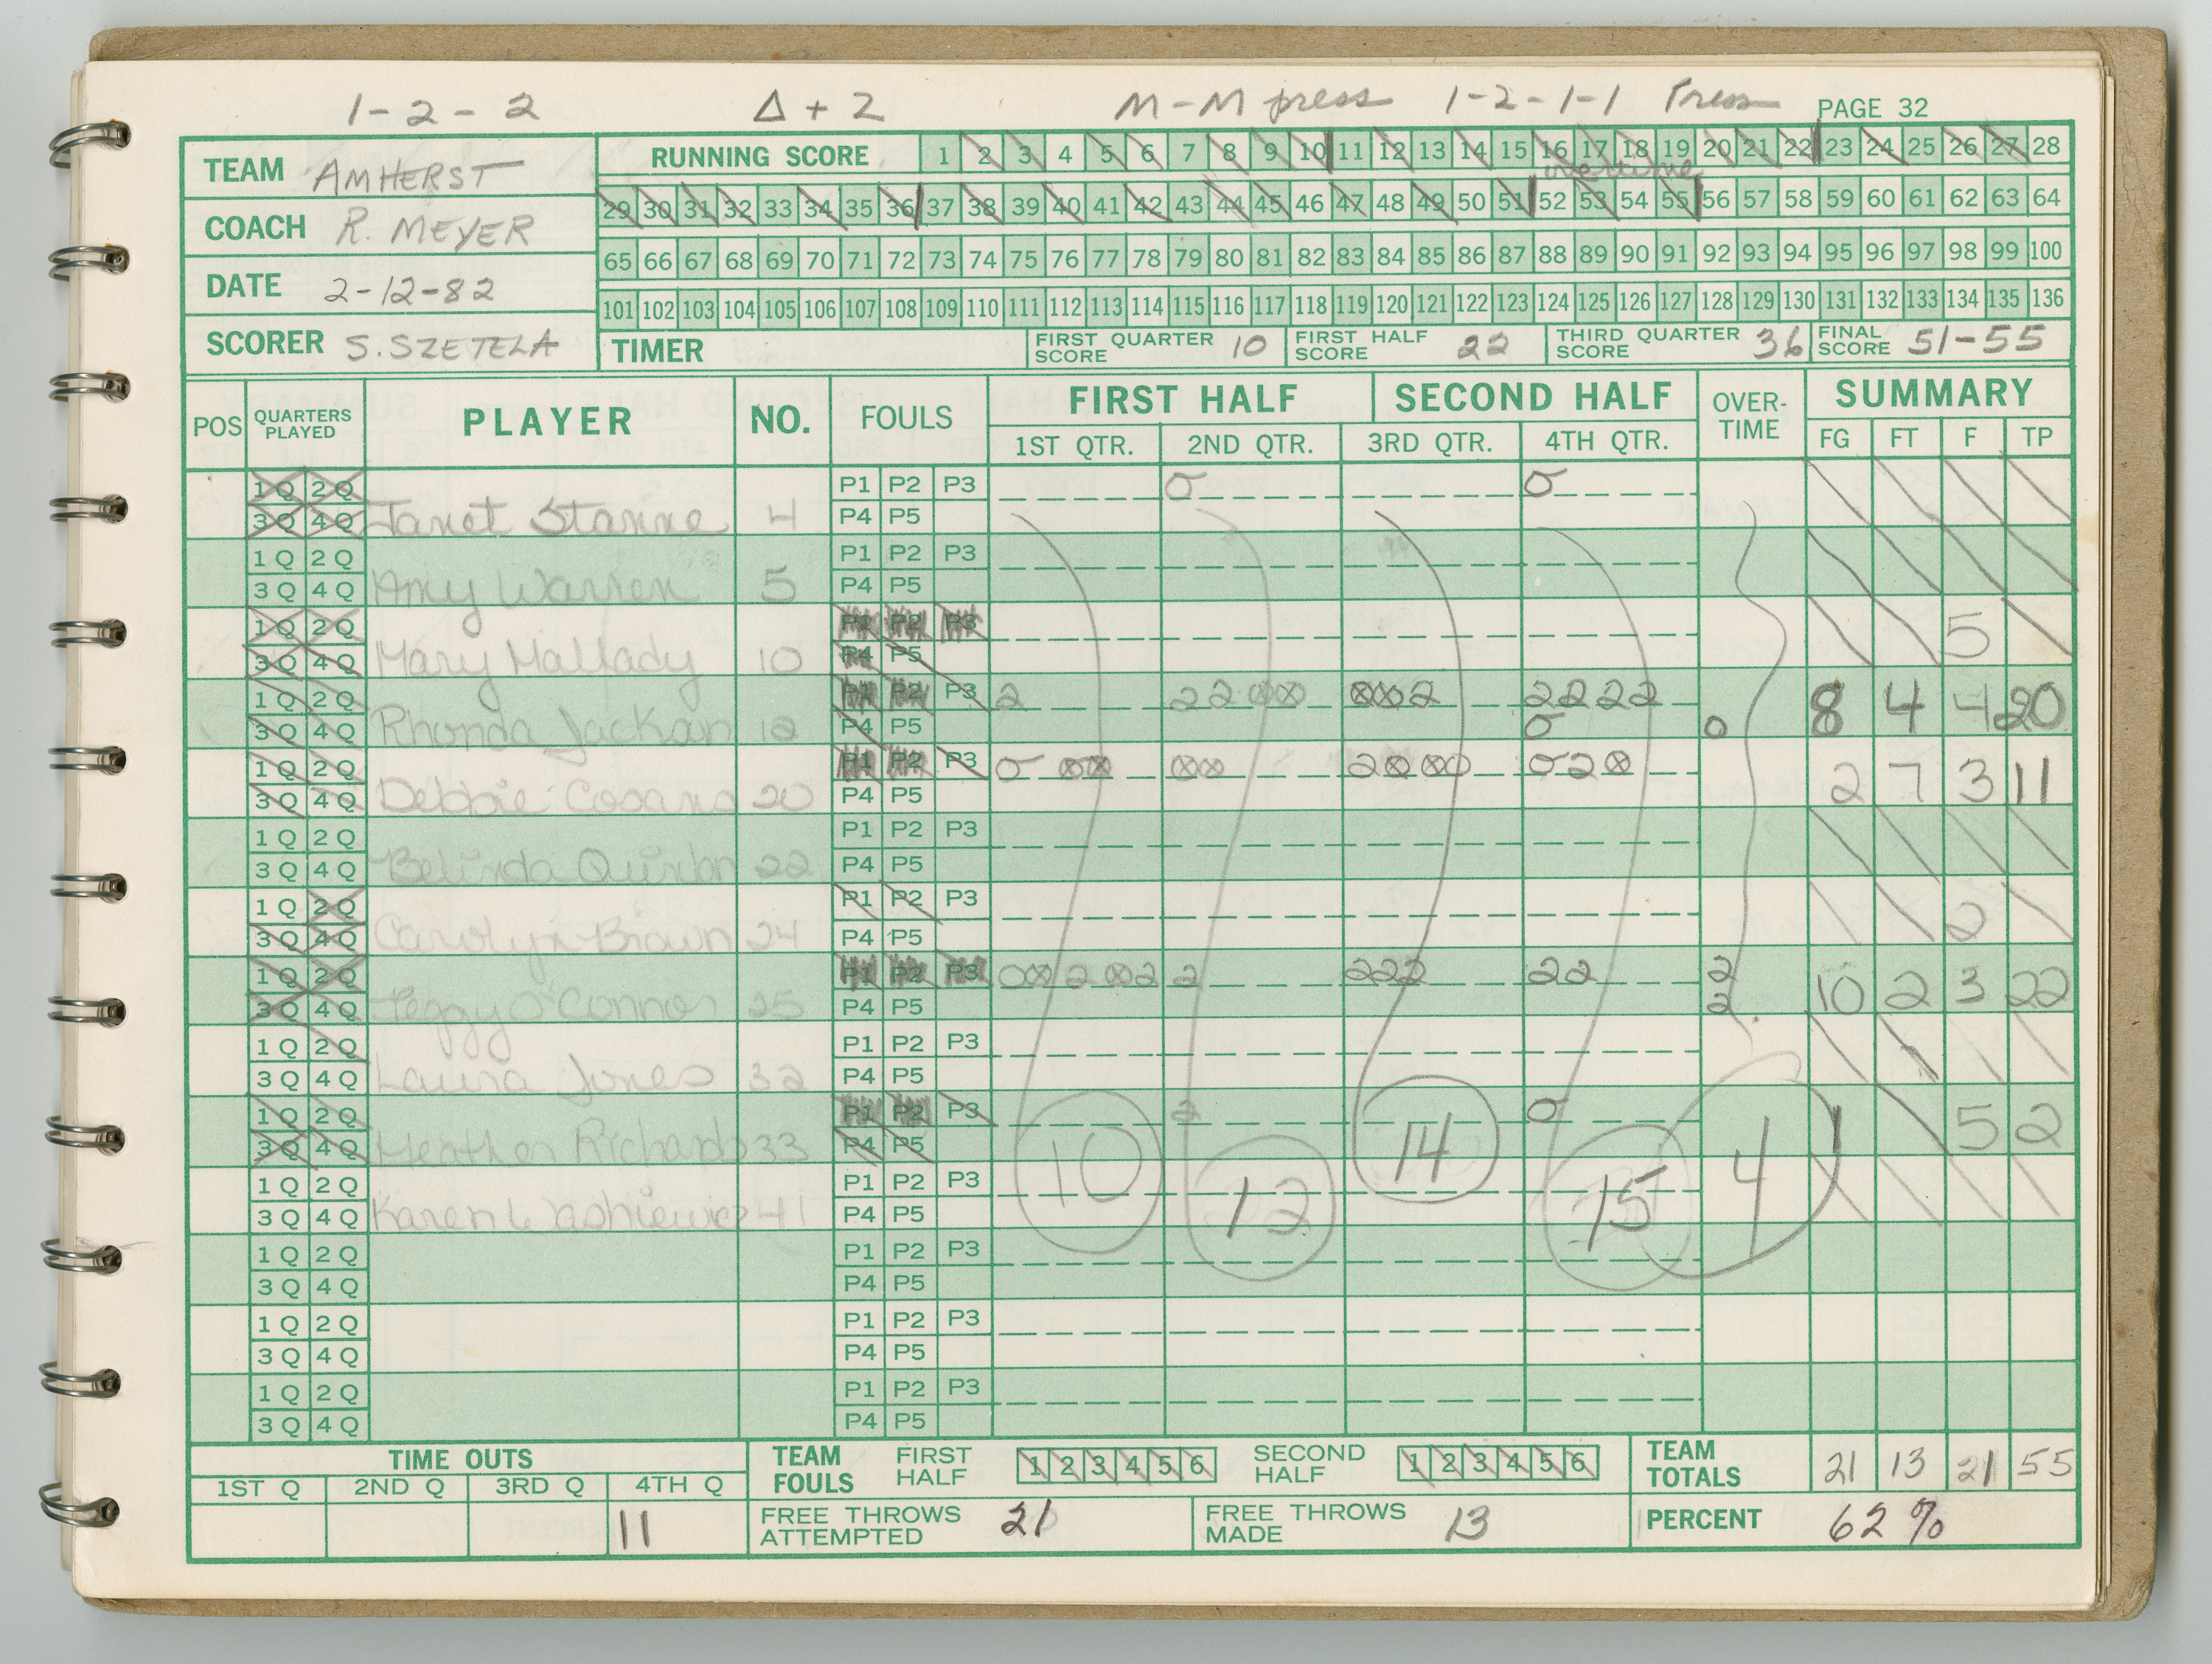 1-2-2 Δ+2 M-M press 1-2-1-1 Press PAGE 32
TEAM AMHERST
COACH R. MEYER
DATE 2-12-82
SCORER S. SZETELA
RUNNING SCORE 1 2 3 4 5 6 7 8 9 10 11 12 13 14 15 16 17 18 19 20 21 22 23 24 25 26 27 28
overtime
29 30 31 32 33 34 35 36 37 38 39 40 41 42 43 44 45 46 47 48 49 50 51 52 53 54 55 56 57 58 59 60 61 62 63 64
65 66 67 68 69 70 71 72 73 74 75 76 77 78 79 80 81 82 83 84 85 86 87 88 89 90 91 92 93 94 95 96 97 98 99 100
101 102 103 104 105 106 107 108 109 110 111 112 113 114 115 116 117 118 119 120 121 122 123 124 125 126 127 128 129 130 131 132 133 134 135 136
TIMER FIRST QUARTER SCORE 10 FIRST HALF SCORE 22 THIRD QUARTER SCORE 36 FINAL SCORE 51-55
POS QUARTERS PLAYED PLAYER NO. FOULS FIRST HALF SECOND HALF OVER-TIME SUMMARY
1ST QTR. 2ND QTR. 3RD QTR. 4TH QTR. FG FT F TP
1Q 2Q P1 P2 P3 O O
3Q 4Q Janet Stanne 4 P4 P5
1Q 2Q P1 P2 P3
3Q 4Q Amy Warren 5 P4 P5
1Q 2Q P1 P2 P3
3Q 4Q Mary Mallady 10 P4 P5 5
1Q 2Q P1 P2 P3 2 22⊗⊗ ⊗⊗2 2222
3Q 4Q Rhonda Jackson 12 P4 P5 O O 8 4 4 20
1Q 2Q P1 P2 P3 O ⊗⊗ ⊗⊗ 2⊗⊗O O2⊗
3Q 4Q Debbie 20 P4 P5 2 7 3 11
1Q 2Q P1 P2 P3
3Q 4Q Belinda Quinlan 22 P4 P5
1Q 2Q P1 P2 P3
3Q 4Q Carolyn Brown 24 P4 P5 2
1Q 2Q P1 P2 P3 O⊗ 2 ⊗2 2 222 22 2
3Q 4Q Peggy O'Connor 25 P4 P5 2 10 2 3 22
1Q 2Q P1 P2 P3
3Q 4Q Laura Jones 32 P4 P5
1Q 2Q P1 P2 P3 2 O
3Q 4Q Heather Richards 33 P4 P5 1 5 2
1Q 2Q P1 P2 P3
3Q 4Q Karen 41 P4 P5
10 12 14 15 4
1Q 2Q P1 P2 P3
3Q 4Q P4 P5
1Q 2Q P1 P2 P3
3Q 4Q P4 P5
1Q 2Q P1 P2 P3
3Q 4Q P4 P5
TIME OUTS
1ST Q 2ND Q 3RD Q 4TH Q
11
TEAM FOULS FIRST HALF 1 2 3 4 5 6 SECOND HALF 1 2 3 4 5 6
TEAM TOTALS 21 13 21 55
FREE THROWS ATTEMPTED 21 FREE THROWS MADE 13 PERCENT 62%